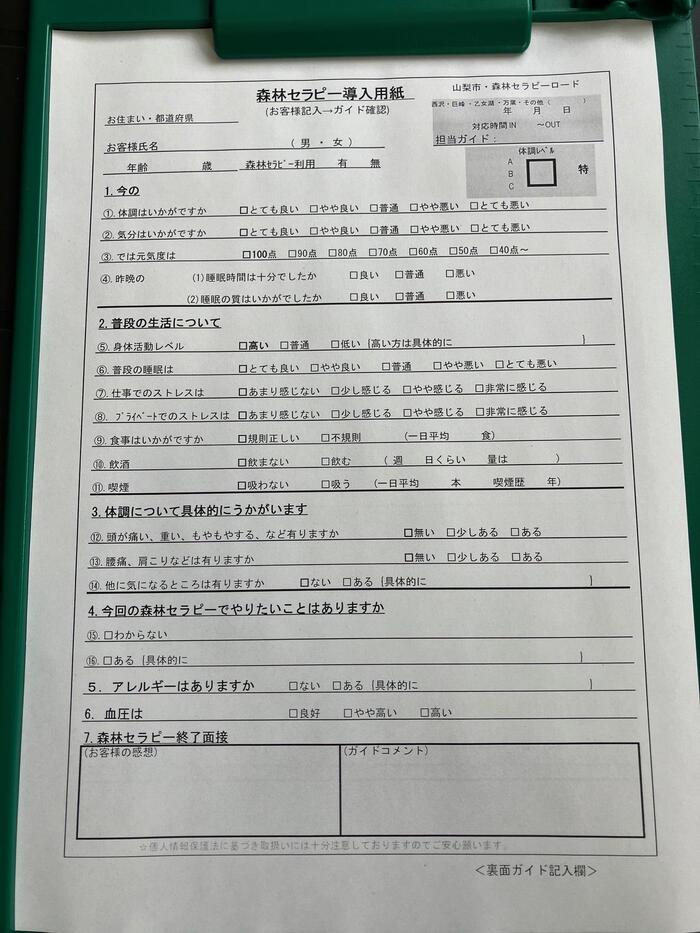 森林セラピー導入用紙
(お客様記入→ガイド確認)
山梨市・森林セラピーロード
西沢・巨峰・乙女湖・万葉・その他（　　　）
年　月　日
対応時間 IN　～OUT
担当ガイド：
お住まい・都道府県
お客様氏名　（ 男 ・ 女 ）
年齢　歳　森林ｾﾗﾋﾟｰ利用　有　無
体調ﾚﾍﾞﾙ
A
B
C
特
1. 今の
①. 体調はいかがですか　□とても良い　□やや良い　□普通　□やや悪い　□とても悪い
②. 気分はいかがですか　□とても良い　□やや良い　□普通　□やや悪い　□とても悪い
③. では元気度は　□100点　□90点　□80点　□70点　□60点　□50点　□40点～
④. 昨晩の　(1)睡眠時間は十分でしたか　□良い　□普通　□悪い
(2)睡眠の質はいかがでしたか　□良い　□普通　□悪い
2. 普段の生活について
⑤. 身体活動レベル　□高い　□普通　□低い　{高い方は具体的に　}
⑥. 普段の睡眠は　□とても良い　□やや良い　□普通　□やや悪い　□とても悪い
⑦. 仕事でのストレスは　□あまり感じない　□少し感じる　□やや感じる　□非常に感じる
⑧. ﾌﾟﾗｲﾍﾞｰﾄでのストレスは　□あまり感じない　□少し感じる　□やや感じる　□非常に感じる
⑨. 食事はいかがですか　□規則正しい　□不規則　(一日平均　食)
⑩. 飲酒　□飲まない　□飲む　( 週　日くらい　量は　)
⑪. 喫煙　□吸わない　□吸う　(一日平均　本　喫煙歴　年)
3. 体調について具体的にうかがいます
⑫. 頭が痛い、重い、もやもやする、など有りますか　□無い　□少しある　□ある
⑬. 腰痛、肩こりなどは有りますか　□無い　□少しある　□ある
⑭. 他に気になるところは有りますか　□ない　□ある {具体的に　}
4. 今回の森林セラピーでやりたいことはありますか
⑮. □わからない
⑯. □ある {具体的に　}
５. アレルギーはありますか　□ない　□ある {具体的に　}
6. 血圧は　□良好　□やや高い　□高い
7. 森林セラピー終了面接
(お客様の感想)　(ガイドコメント)
☆個人情報保護法に基づき取扱いには十分注意しておりますのでご安心願います。
＜裏面ガイド記入欄＞